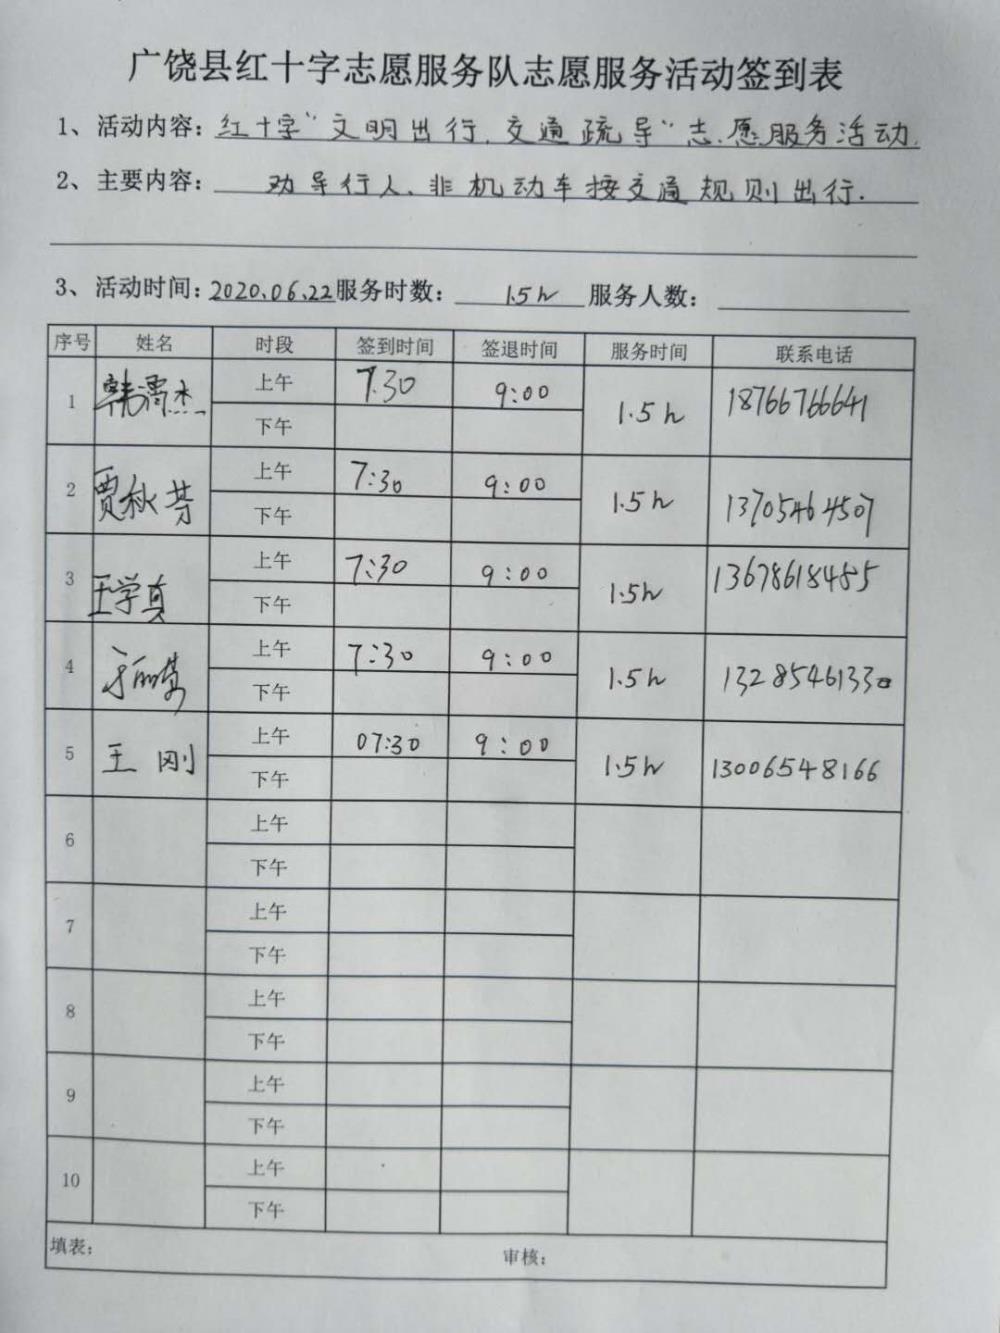 广饶县红十字志愿服务队志愿服务活动签到表
1、活动内容：红十字“文明出行.交通疏导”志愿服务活动.
2、主要内容：劝导行人、非机动车按交通规则出行.
3、活动时间：2020.06.22服务时数：1.5h 服务人数：
序号 姓名 时段 签到时间 签退时间 服务时间 联系电话
1 韩杰 上午 7.30 9:00 1.5h 18766766641
下午
2 贾秋芳 上午 7:30 9:00 1.5h 13705464507
下午
3 王学真 上午 7:30 9:00 1.5h 13678618485
下午
4 上午 7:30 9:00 1.5h 13285461330
下午
5 王刚 上午 07:30 9:00 1.5h 13006548166
下午
6 上午
下午
7 上午
下午
8 上午
下午
9 上午
下午
10 上午
下午
填表： 审核：